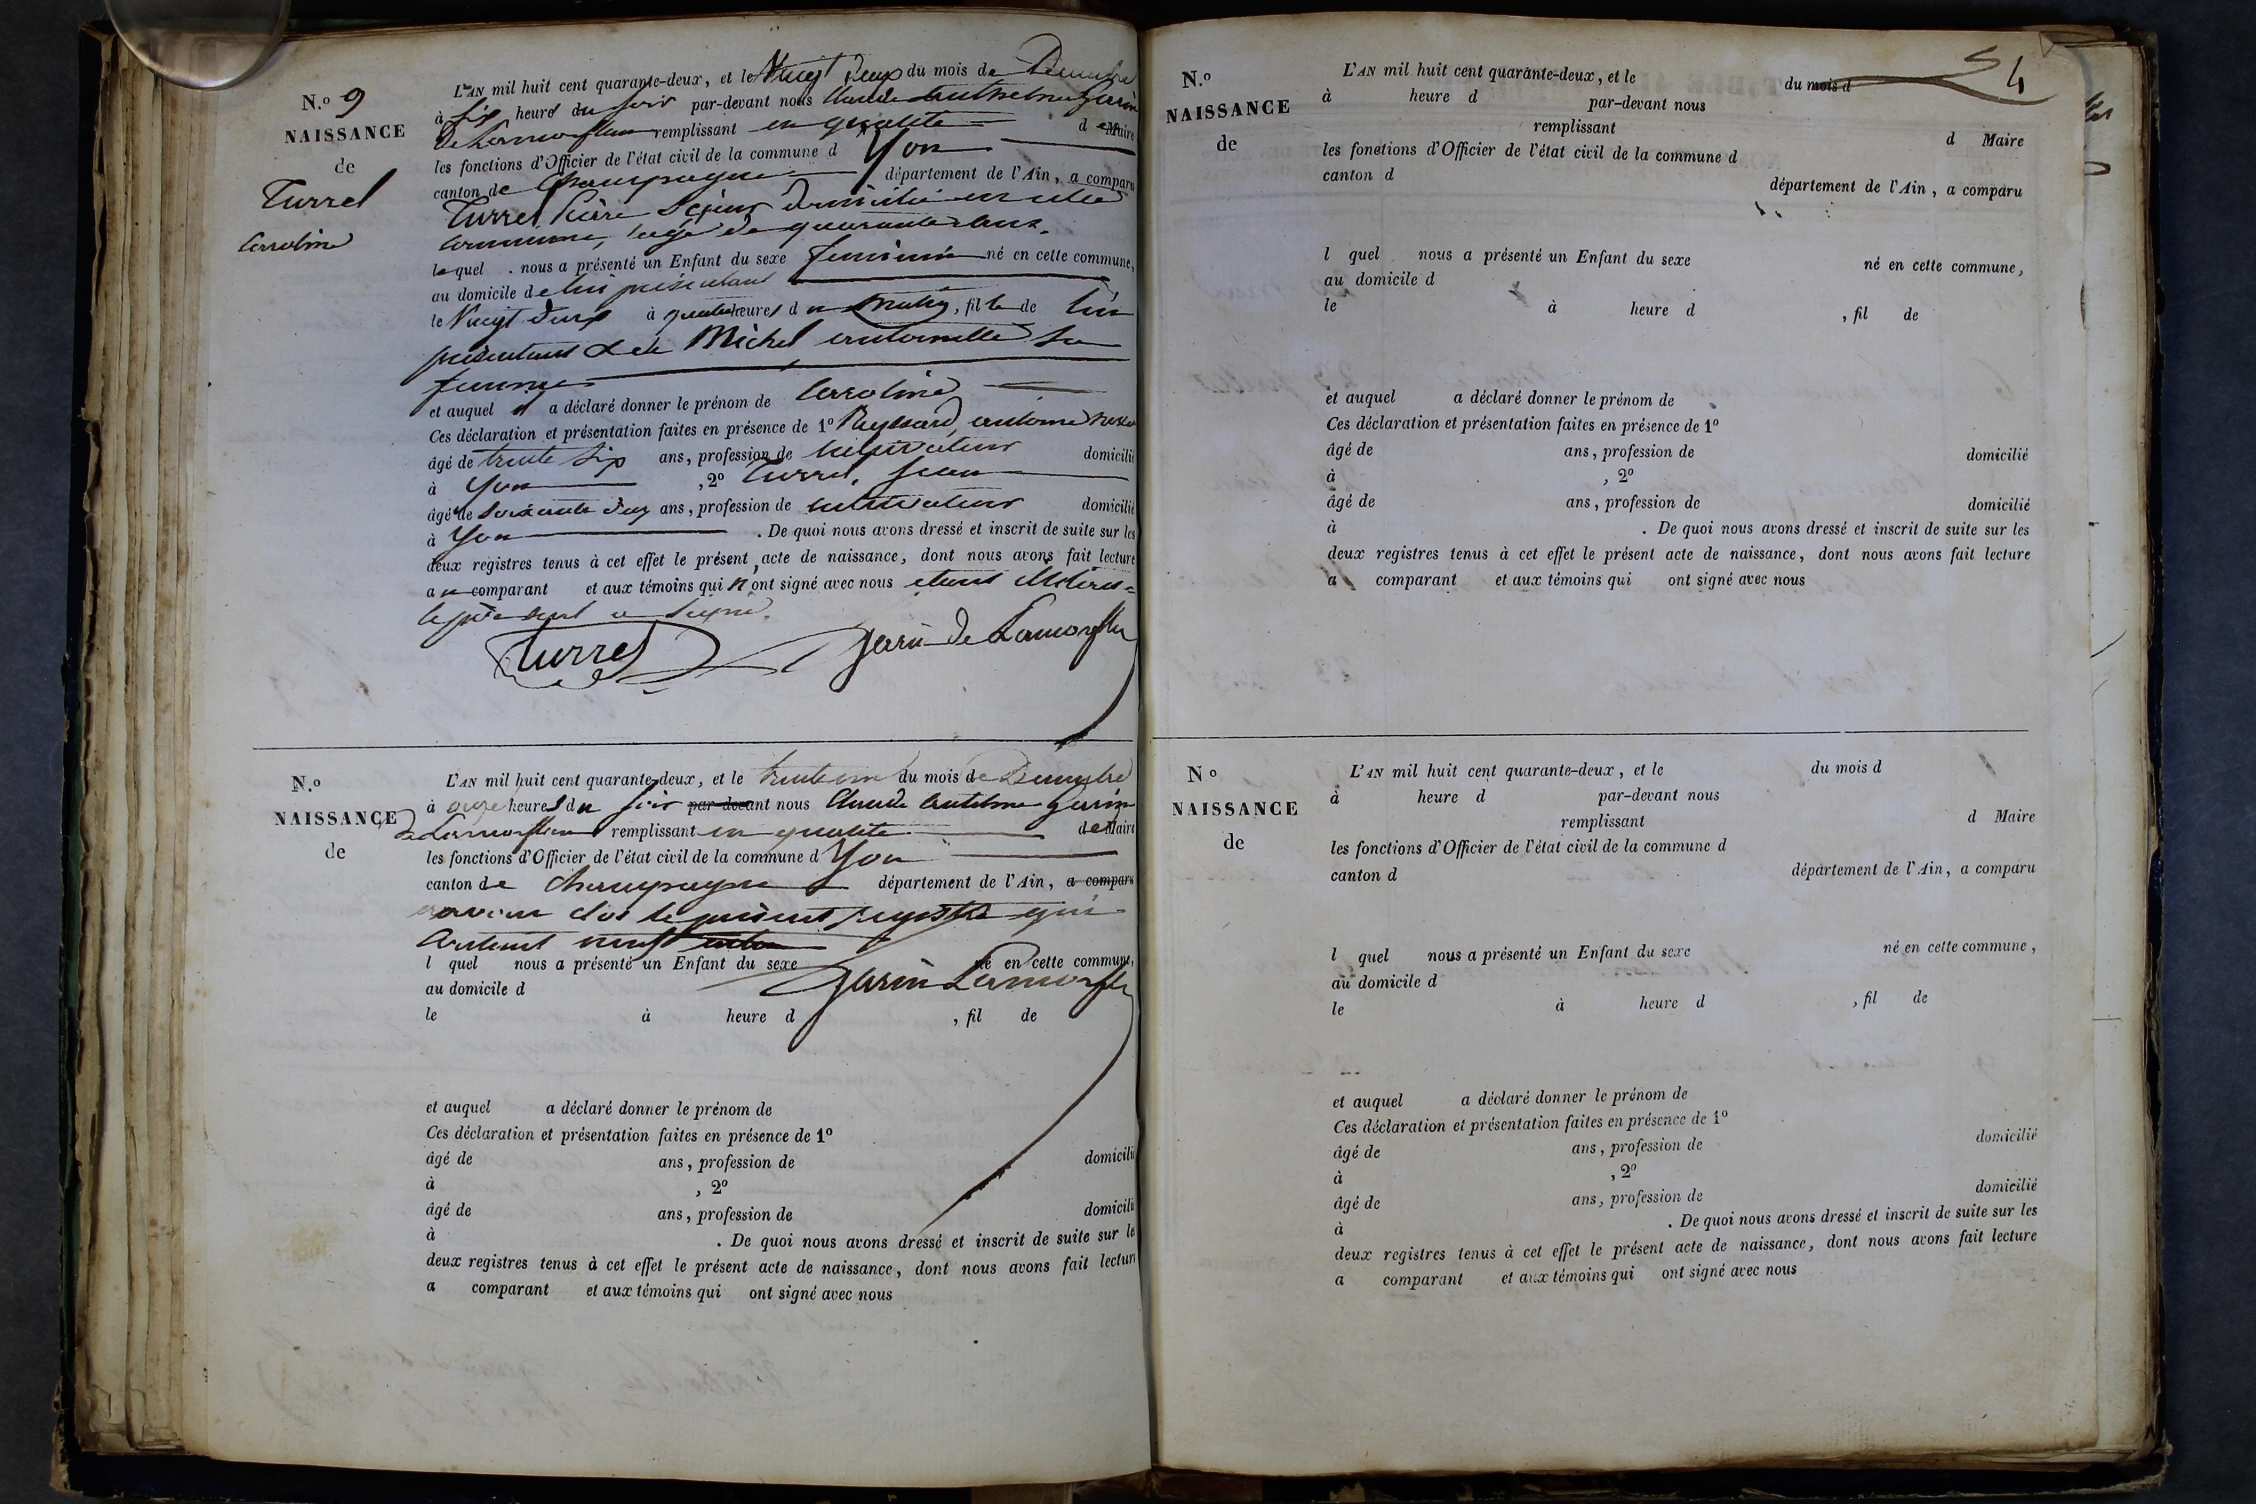 N.o 9
NAISSANCE
de
Turrel
Carroline
L'AN mil huit cent quarante-deux, et le Vingt deux du mois de Décembre
à six heures du soir par-devant nous Claude Anthelme Garin
De Lamorflan remplissant en qualité de Maire
les fonctions d'Officier de l'état civil de la commune d Yon
canton de Champagne département de l'Ain, a comparu
Turrel domicilié en cette
commune, agé de quarante ans.
lequel nous a présenté un Enfant du sexe feminin né en cette commune,
au domicile de lui présentant
le Vingt deux à quatre heures du matin, fille de lui
présentant & de Michel antoinette sa
femme
et auquel il a déclaré donner le prénom de Carroline
Ces déclaration et présentation faites en présence de 1o antoine
âgé de trente six ans, profession de cultivateur domicilié
à Yon , 2o Turrel, Jean
âgé de soixante deux ans, profession de cultivateur domicilié
à Yon . De quoi nous avons dressé et inscrit de suite sur les
deux registres tenus à cet effet le présent acte de naissance, dont nous avons fait lecture
au comparant et aux témoins qui n'ont signé avec nous étant illitérés
le père seul a signé.
Turrel Garin De Lamorflan
N.o
NAISSANCE
de
L'AN mil huit cent quarante-deux, et le trente un du mois de Décembre
à onze heures du soir par-devant nous Claude Anthelme Garin
De Lamorflan remplissant en qualité de Maire
les fonctions d'Officier de l'état civil de la commune d Yon
canton de Champagne département de l'Ain, a comparu
avons clos le présent registre qui
contient neuf
l quel nous a présenté un Enfant du sexe né en cette commune,
Garin Lamorflan
au domicile d
le à heure d , fil de
et auquel a déclaré donner le prénom de
Ces déclaration et présentation faites en présence de 1o
âgé de ans, profession de domicilié
à , 2o
âgé de ans, profession de domicilié
à . De quoi nous avons dressé et inscrit de suite sur le
deux registres tenus à cet effet le présent acte de naissance, dont nous avons fait lecture
a comparant et aux témoins qui ont signé avec nous
54
N.o
NAISSANCE
de
L'AN mil huit cent quarante-deux, et le du mois d
à heure d par-devant nous
remplissant d Maire
les fonctions d'Officier de l'état civil de la commune d
canton d département de l'Ain, a comparu
l quel nous a présenté un Enfant du sexe né en cette commune,
au domicile d
le à heure d , fil de
et auquel a déclaré donner le prénom de
Ces déclaration et présentation faites en présence de 1o
âgé de ans, profession de domicilié
à , 2o
âgé de ans, profession de domicilié
à . De quoi nous avons dressé et inscrit de suite sur les
deux registres tenus à cet effet le présent acte de naissance, dont nous avons fait lecture
a comparant et aux témoins qui ont signé avec nous
No
NAISSANCE
de
L'AN mil huit cent quarante-deux, et le du mois d
à heure d par-devant nous
remplissant d Maire
les fonctions d'Officier de l'état civil de la commune d
canton d département de l'Ain, a comparu
l quel nous a présenté un Enfant du sexe né en cette commune,
au domicile d
le à heure d , fil de
et auquel a déclaré donner le prénom de
Ces déclaration et présentation faites en présence de 1o
âgé de ans, profession de domicilié
à , 2o
âgé de ans, profession de domicilié
à . De quoi nous avons dressé et inscrit de suite sur les
deux registres tenus à cet effet le présent acte de naissance, dont nous avons fait lecture
a comparant et aux témoins qui ont signé avec nous